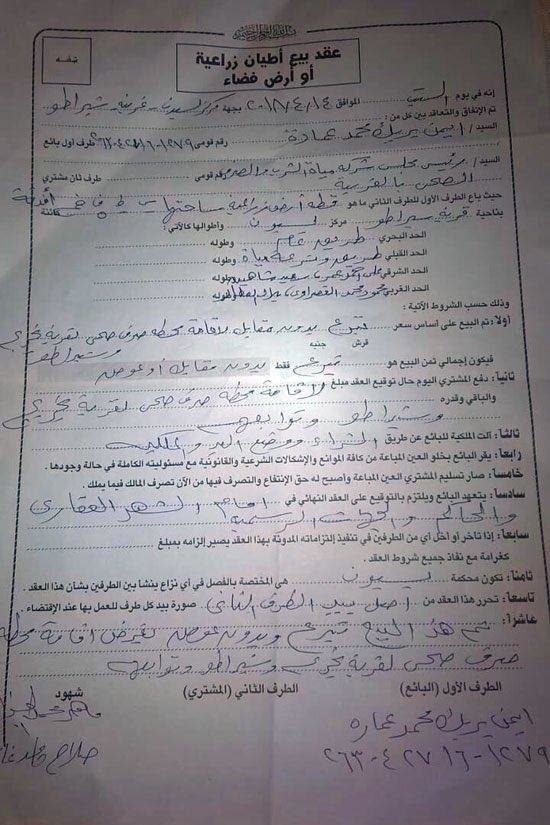 بسم الله الرحمن الرحيم
عقد بيع أطيان زراعية
أو أرض فضاء
إنه في يوم السبت الموافق ٢٠١٨/٤/١٤ بجهة مركز بسيون - غربية - شبراطو
تم الإتفاق والتعاقد بين كل من :
السيد / ايمن بريك محمد عمارة رقم قومى طرف أول بائع
السيد / رئيس مجلس شركة مياة الشرب والصرف رقم قومى طرف ثان مشترى
الصحى بالغربية
حيث باع الطرف الأول للطرف الثانى ما هو قطعة أرض زراعية مساحتها
بناحية قرية شبراطو مركز بسيون وأطوالها كالآتى : كائنة
الحد البحرى طريق عام وطوله
الحد القبلى طريق وترعة مياة وطوله
الحد الشرقى وطوله
الحد الغربى وطوله
وذلك حسب الشروط الآتية :
أولاً : تم البيع على أساس سعر تبرع بدون مقابل لاقامة محطة صرف صحى لقرية
وشبراطو
قرش جنيه
فيكون إجمالى ثمن البيع هو تبرع فقط بدون مقابل أو عوض
ثانياً : دفع المشترى اليوم حال توقيع العقد مبلغ
والباقى وقدره لاقامة محطة صرف صحى لقرية
وشبراطو وتوابعها
ثالثاً : آلت الملكية للبائع عن طريق الشراء ووضع اليد والملكية
رابعاً : يقر البائع بخلو العين المباعة من كافة الموانع والإشكالات الشرعية والقانونية مع مسئوليته الكاملة فى حالة وجودها .
خامساً : صار تسليم المشترى العين المباعة وأصبح له حق الإنتفاع والتصرف فيها من الآن تصرف المالك فيما يملك .
سادساً : يتعهد البائع ويلتزم بالتوقيع على العقد النهائى فى امام الشهر العقارى
والمحاكم والجهات الرسمية
سابعاً : إذا تاخر أو اخل أى من الطرفين فى تنفيذ إلتزاماته المدونة بهذا العقد يصير إلزامه بمبلغ
كغرامة مع نفاذ جميع شروط العقد .
ثامناً : تكون محكمة بسيون هى المختصة بالفصل فى أى نزاع ينشا بين الطرفين بشان هذا العقد .
تاسعاً : تحرر هذا العقد من اصل بيد الطرف الثانى صورة بيد كل طرف للعمل بها عند الإقتضاء .
عاشراً : تم هذا البيع تبرع وبدون عوض لغرض اقامة محطة
صرف صحى لقرية وشبراطو وتوابعها
الطرف الأول (البائع) الطرف الثانى (المشترى) شهود
ايمن بريك محمد عماره
٢٦٣٠٤٢٧١٦٠١٢٧٩
صلاح